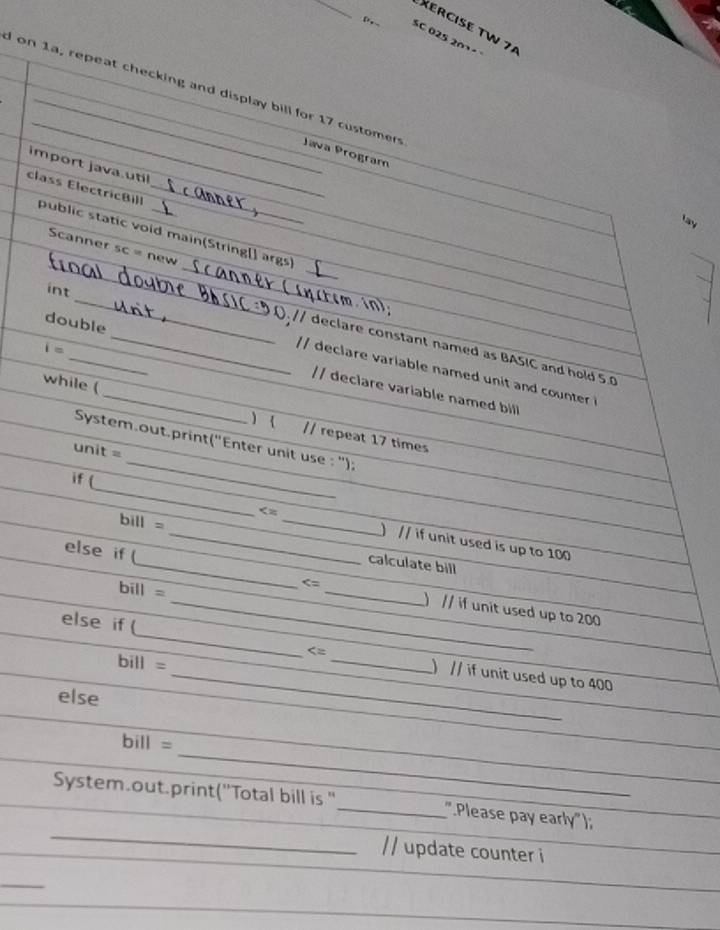 EXERCISE TW 7A
SC 025
d on 1a, repeat checking and display bill for 17 customers.
Java Program
import java.util Scanner;
class ElectricBill {
public static void main(String[] args) {
Scanner sc = new Scanner (System.in);
final double BASIC = 5.0; // declare constant named as BASIC and hold 5.0
int unit, // declare variable named unit and counter i
double // declare variable named bill
i =
while ( ) { // repeat 17 times
System.out.print("Enter unit use : ");
unit =
if ( <= ) // if unit used is up to 100
bill = calculate bill
else if ( <= ) // if unit used up to 200
bill =
else if ( <= ) // if unit used up to 400
bill =
else
bill =
System.out.print("Total bill is " ".Please pay early");
// update counter i
lay